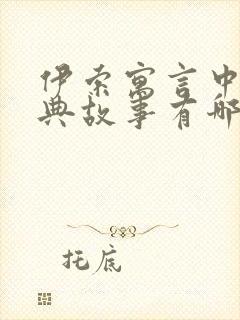 伊索寓言中
典故事有哪
托底